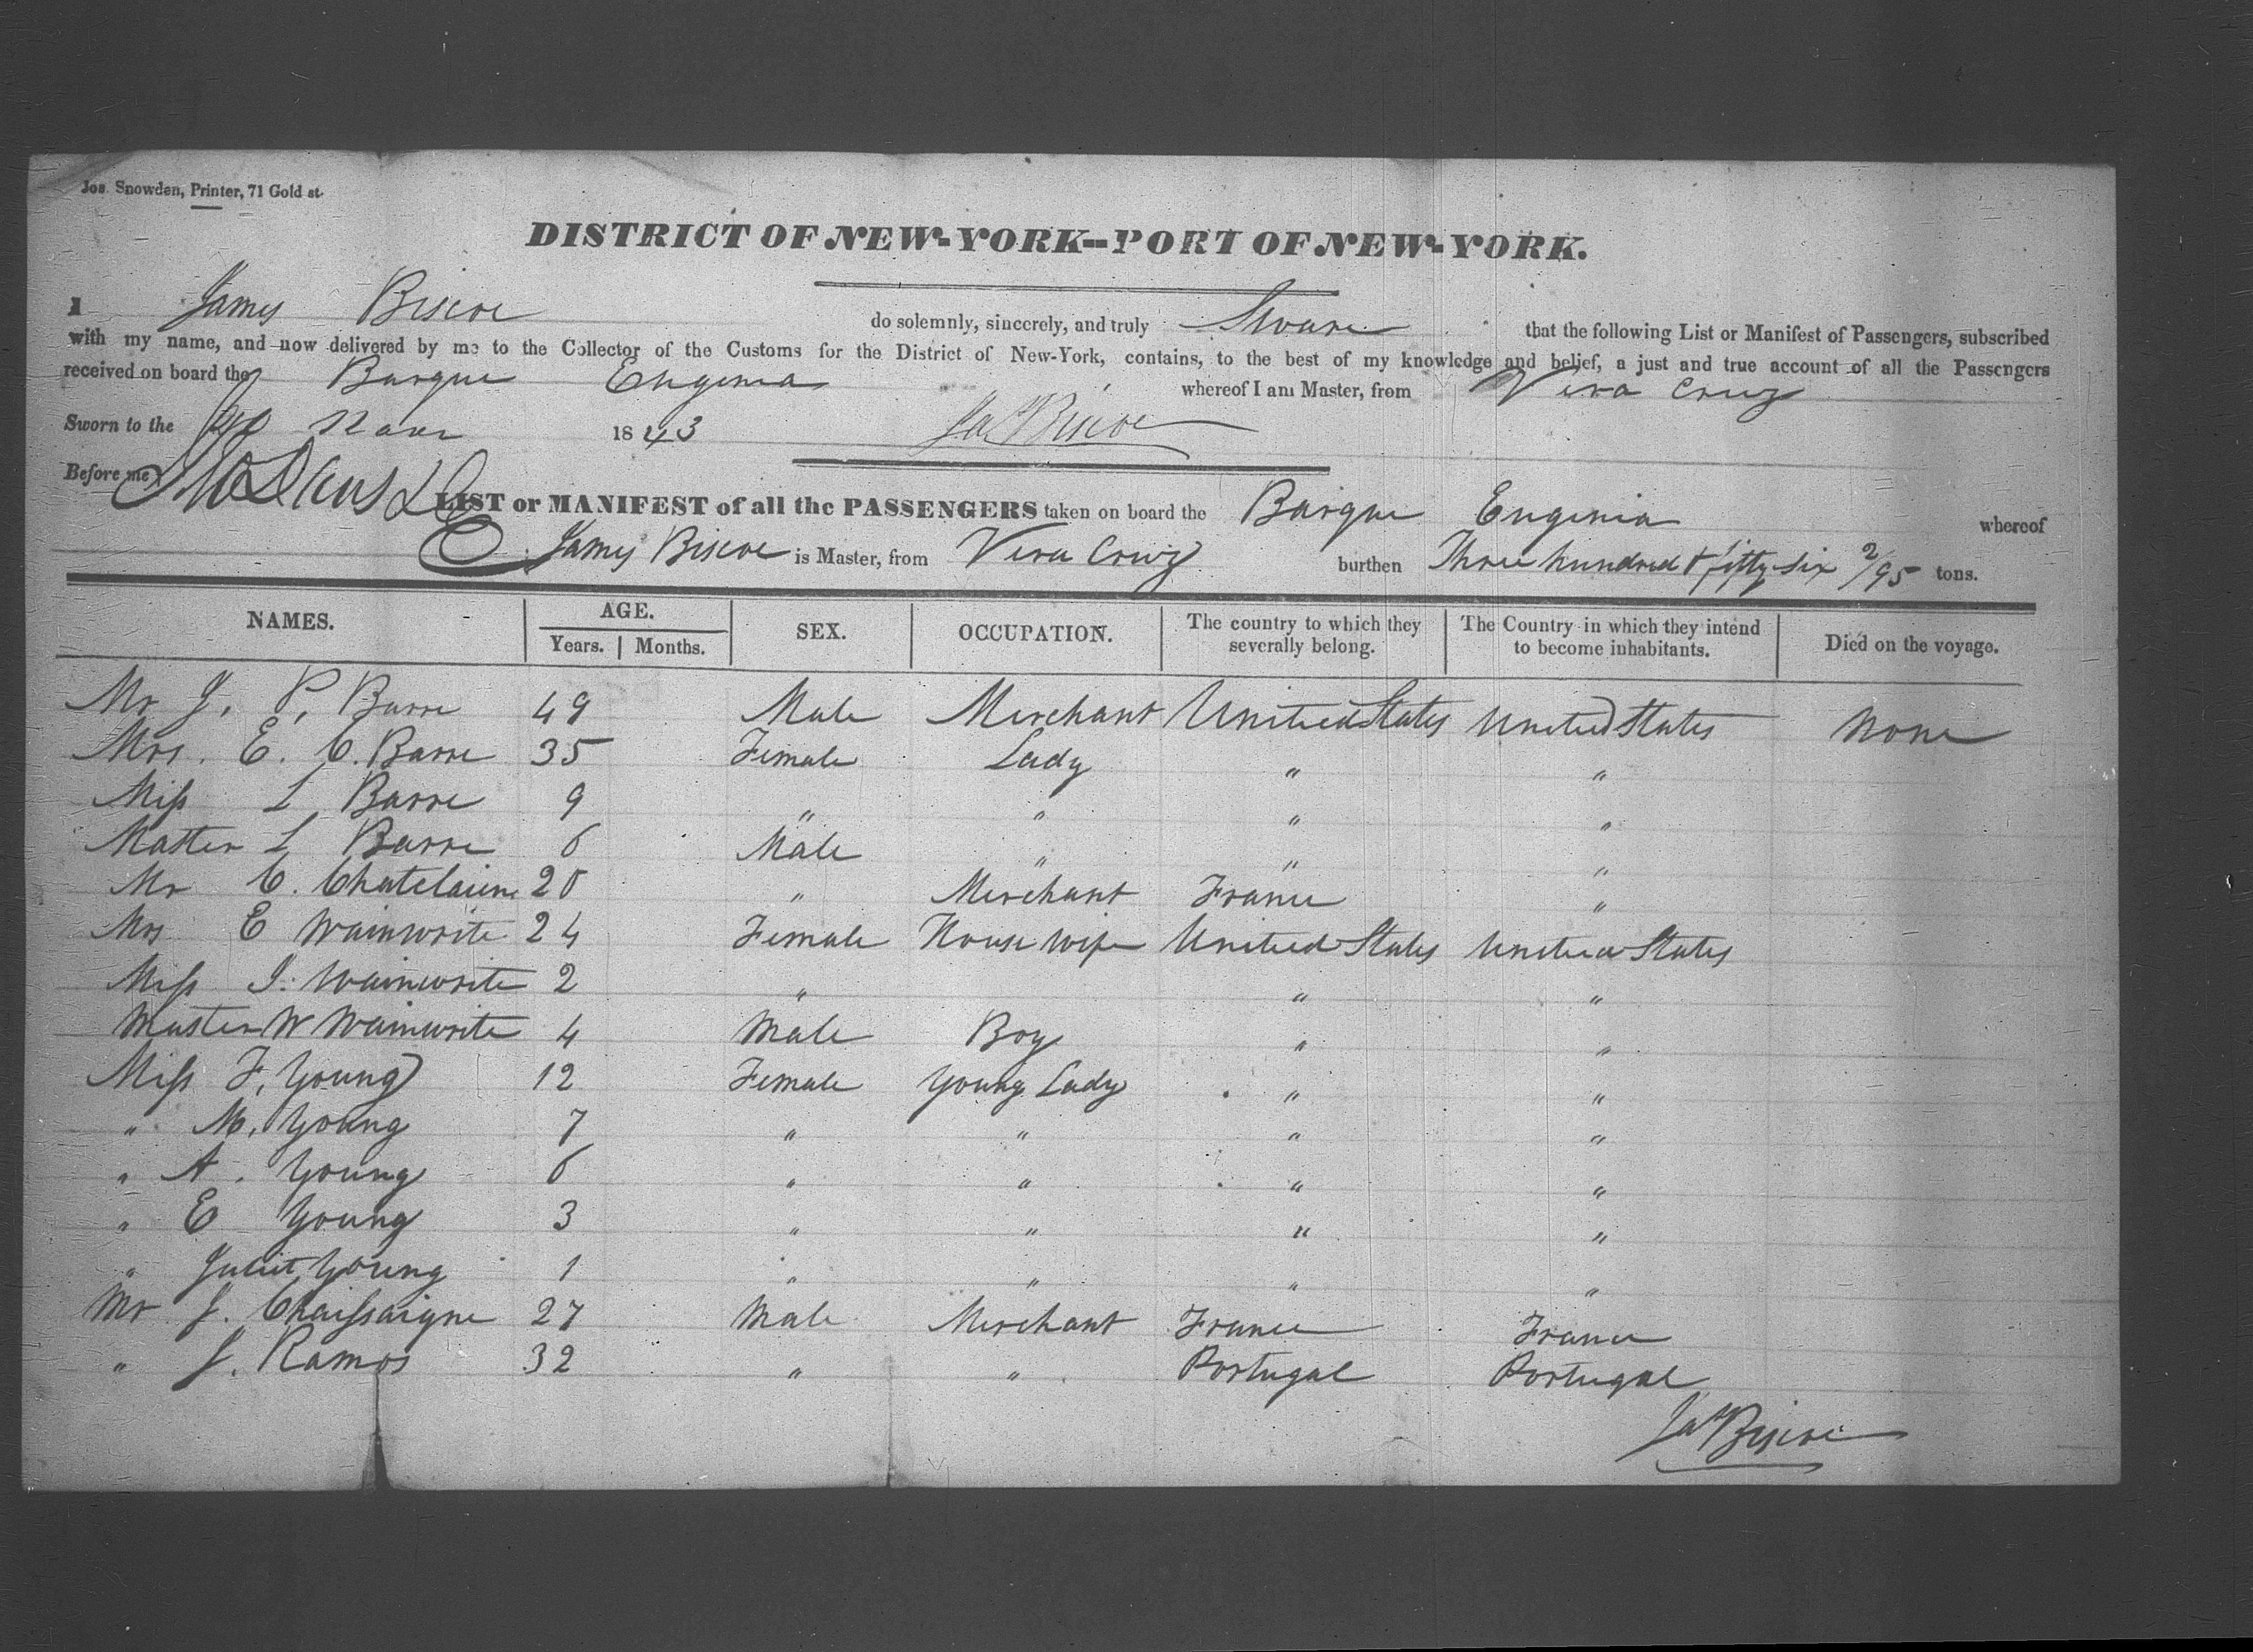 Jos. Snowden, Printer, 71 Gold st.
DISTRICT OF NEW-YORK--PORT OF NEW-YORK.
I James Biscoe do solemnly, sincerely, and truly Sware that the following List or Manifest of Passengers, subscribed
with my name, and now delivered by me to the Collector of the Customs for the District of New-York, contains, to the best of my knowledge and belief, a just and true account of all the Passengers
received on board the Barque Eugenia whereof I am Master, from Vera Cruz
Sworn to the 1843 Jas Biscoe
Before me
LIST or MANIFEST of all the PASSENGERS taken on board the Barque Eugenia whereof
James Biscoe is Master, from Vera Cruz burthen Three hundred & fifty six 2/95 tons.
NAMES. AGE. Years. Months. SEX. OCCUPATION. The country to which they severally belong. The Country in which they intend to become inhabitants. Died on the voyage.
Mr J. P. Barre 49 Male Merchant United States United States None
Mrs. E. C. Barre 35 Female Lady " "
Miss L Barre 9 " " " "
Master L Barre 6 Male " " "
Mr C. Chatelaine 28 " Merchant France "
Mrs E Wainwrite 24 Female House wife United States United States
Miss J. Wainwrite 2 " " "
Master W Wainwrite 4 Male Boy " "
Miss F. Young 12 Female Young Lady " "
" M. Young 7 " " " "
" A. Young 6 " " " "
" E Young 3 " " " "
" Juliet Young 1 " " " "
Mr J. Chaissaigne 27 Male Merchant France France
" J. Ramos 32 " " Portugal Portugal
Jas Biscoe